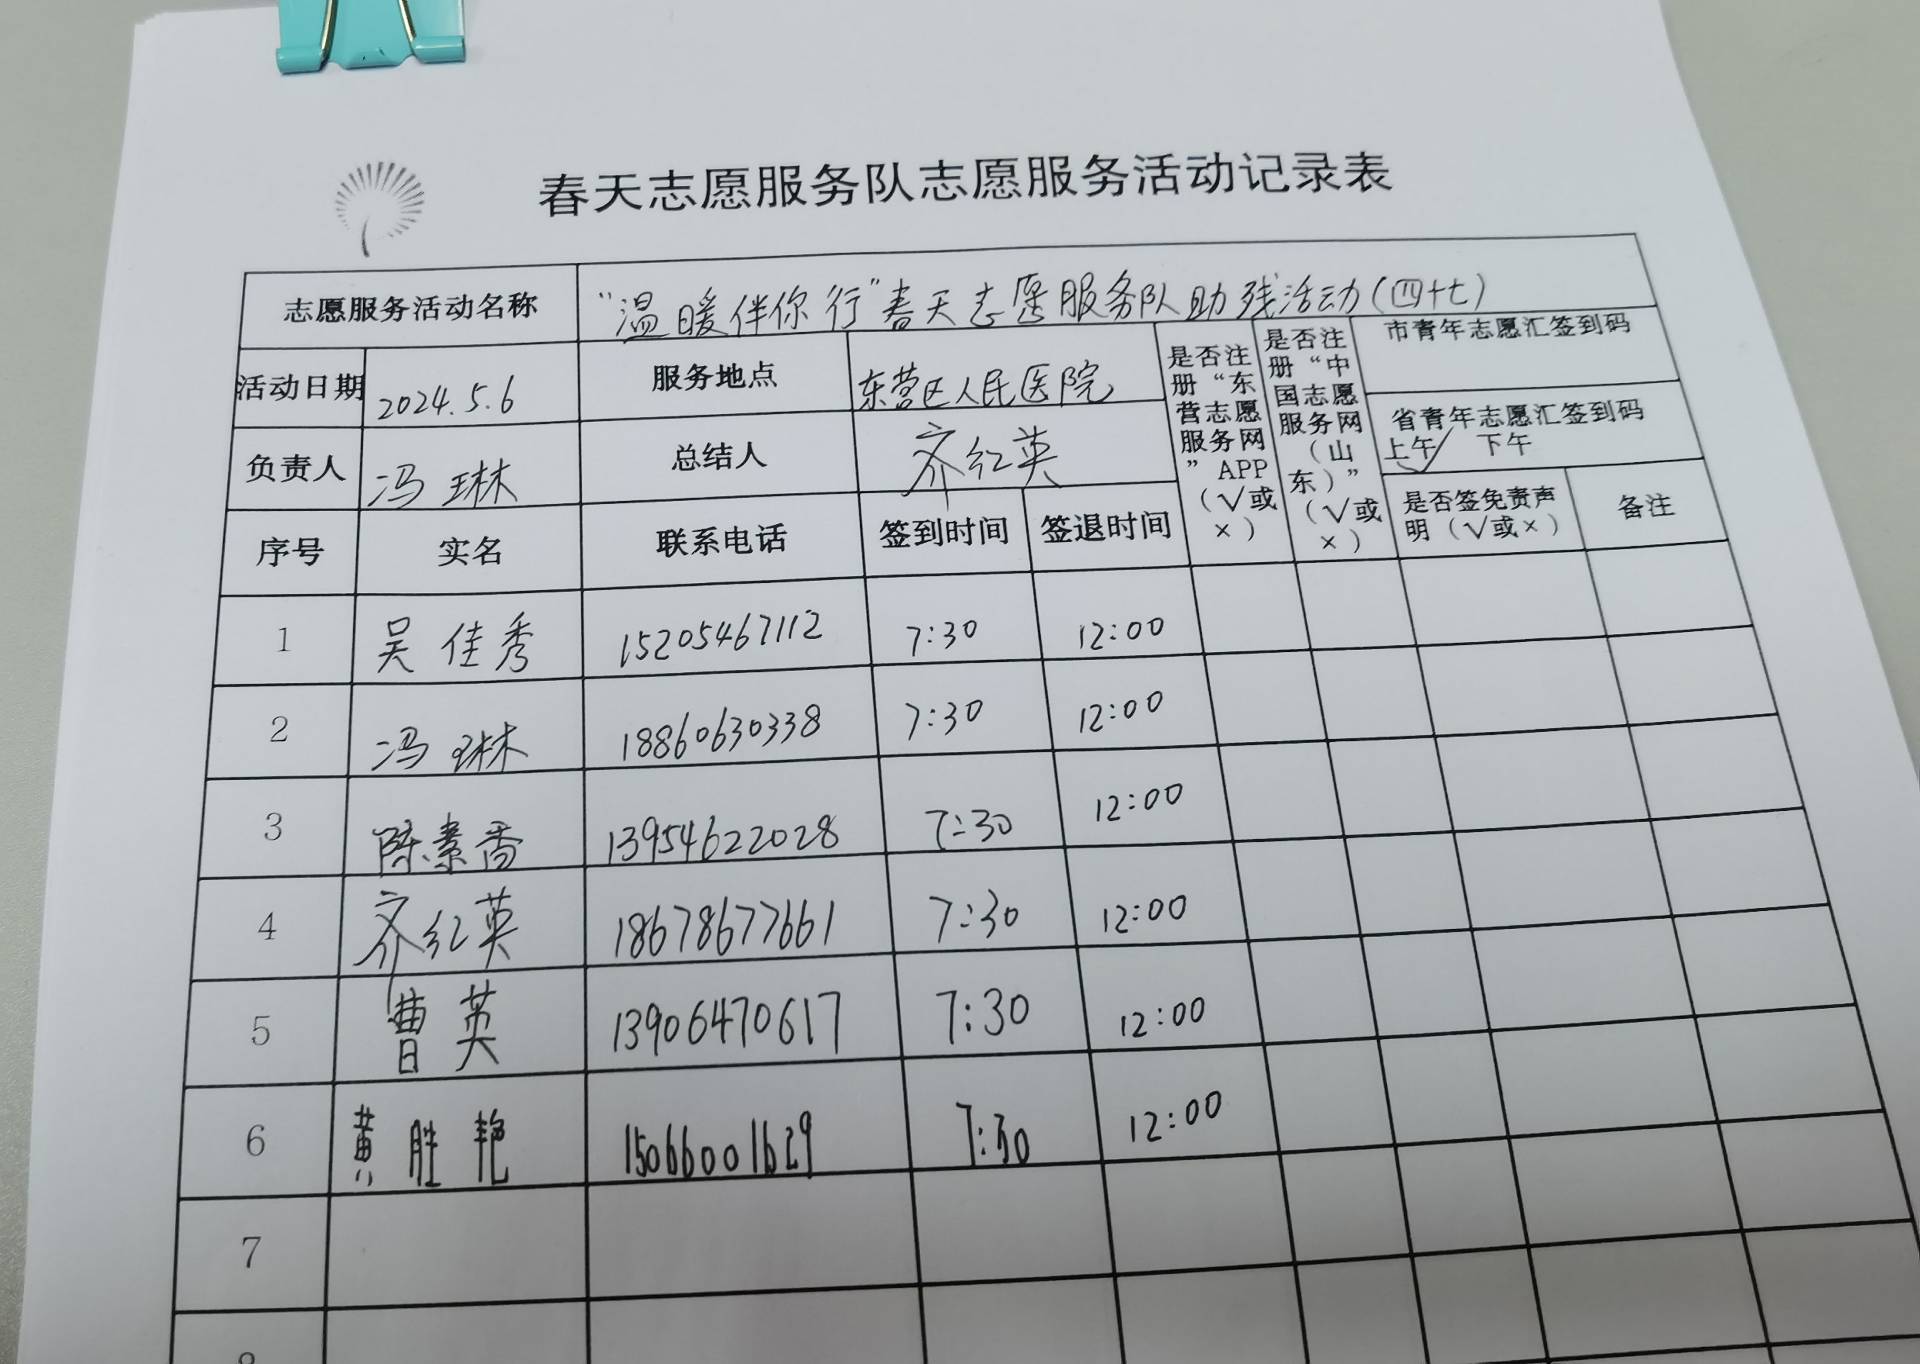 春天志愿服务队志愿服务活动记录表
志愿服务活动名称 “温暖伴你行”春天志愿服务队助残活动(四十七)
活动日期 2024.5.6 服务地点 东营区人民医院
负责人 冯琳 总结人 齐红英
是否注册“东营志愿服务网”APP（√或×）
是否注册“中国志愿服务网（山东）”（√或×）
市青年志愿汇签到码
省青年志愿汇签到码
上午√ 下午
序号 实名 联系电话 签到时间 签退时间 是否签免责声明（√或×） 备注
1 吴佳秀 15205467112 7:30 12:00
2 冯琳 18860630338 7:30 12:00
3 陈素香 13954622028 7:30 12:00
4 齐红英 18678677661 7:30 12:00
5 曹英 13906470617 7:30 12:00
6 黄胜艳 15066001629 7:30 12:00
7